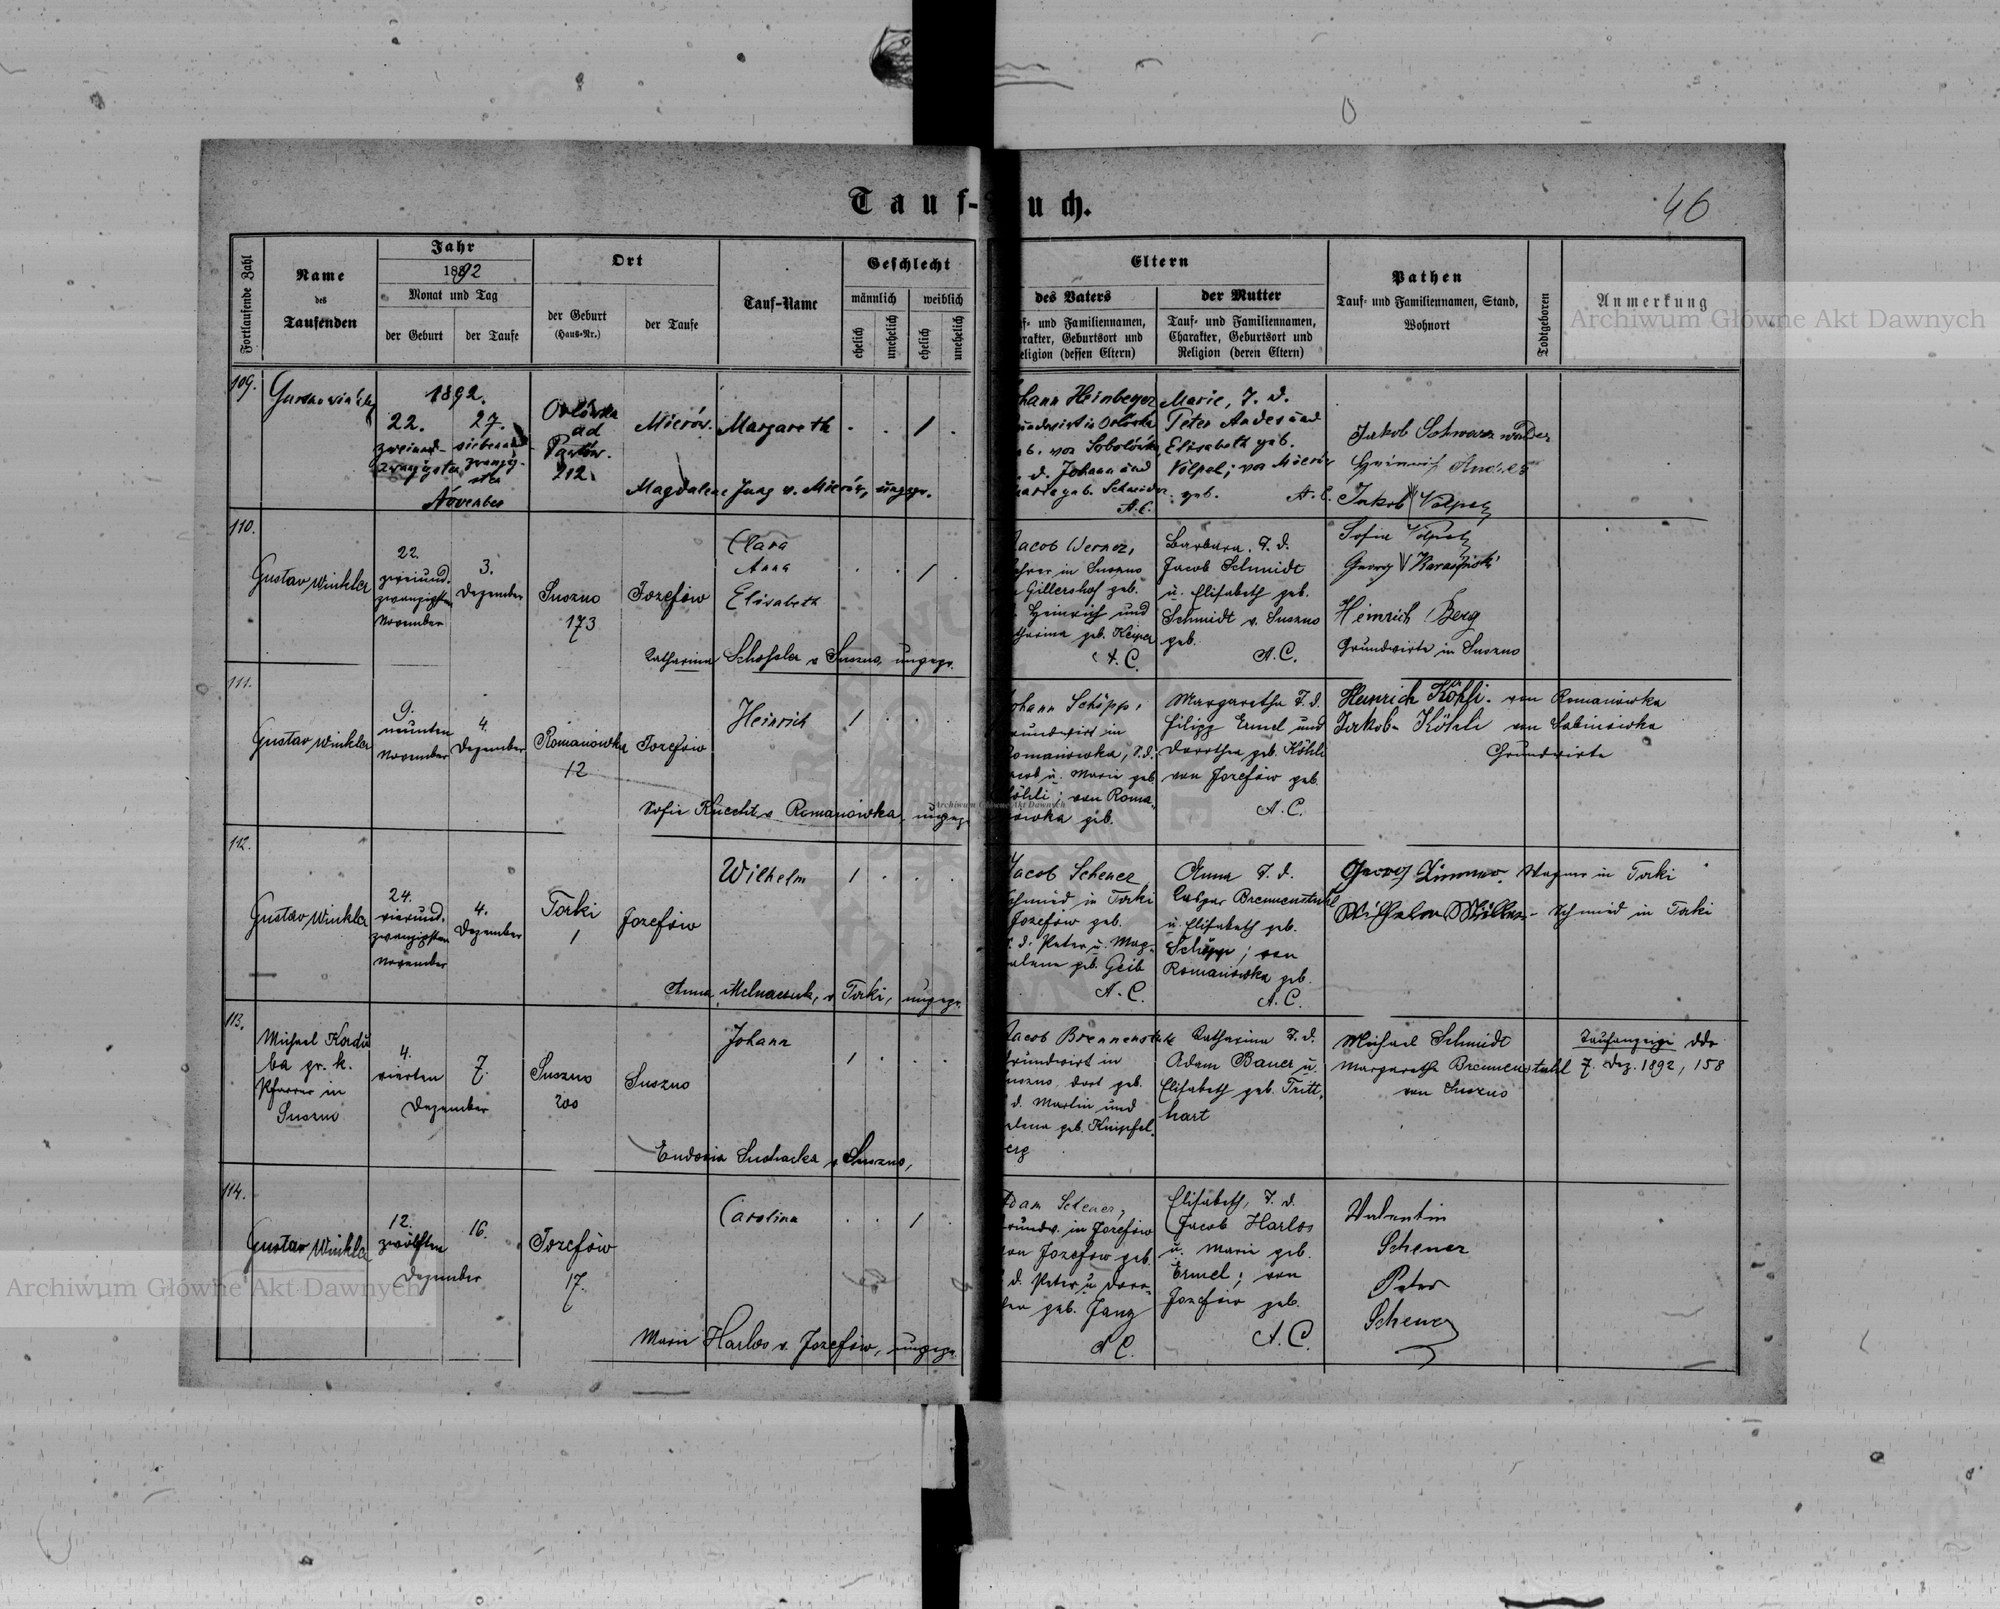 Tauf-Buch.
46
Fortlaufende Zahl
Name
des
Taufenden
Jahr
1892
Monat und Tag
der Geburt
der Taufe
Ort
der Geburt
(Haus-Nr.)
der Taufe
Tauf-Name
Geschlecht
männlich
weiblich
ehelich
unehelich
ehelich
unehelich
Eltern
des Vaters
und Familiennamen,
Geburtsort und
(dessen Eltern)
der Mutter
Tauf- und Familiennamen,
Charakter, Geburtsort und
Religion (deren Eltern)
Pathen
Tauf- und Familiennamen, Stand,
Wohnort
Todtgeboren
Anmerkung
Archiwum Główne Akt Dawnych
109.
1892.
22.
27.
November
Orlówka
ad
212.
Mierów.
Margareth
1
Magdalene Jung v. Mierów, ungepr.
Heinbeger
in Orlówka
d. Johann und
geb. Schneider
A. C.
Marie, T. d.
Peter Andes und
Elisabeth geb.
Völpel; von Mierów
geb. A. C.
Jakob Schwarzwalder
Heinrich Andes
Jakob
110.
Gustav Winkler
22.
zweiund-
zwanzigsten
November
3.
Dezember
Suszno
173
Jozefów
Clara
Anna
Elisabeth
1
Catharina v Suszno, ungepr.
Jacob Werner,
in Suszno
Gillershof geb.
Heinrich und
geb.
A. C.
Barbara, T. d.
Jacob Schmidt
u. Elisabeth geb.
Schmidt v. Suszno
geb.
A. C.
Sofia
Georg
Heinrich Berg
Grundwirte in Suszno
111.
Gustav Winkler
9.
neunten
November
4.
Dezember
Romanówka
12
Jozefów
Heinrich
1
Sofie Knecht v Romanówka, ungepr.
Johann Schöpp,
in
Romanówka, S. d.
u. Marie geb.
Köhli; von Roma-
nówka geb.
Margaretha T. d.
Filipp Ermel und
Dorothea geb. Köhli
von Jozefów geb.
A. C.
Heinrich Köhli. von Romanówka
Jakob Köhli von Sabinówka
Grundwirte
Archiwum Główne Akt Dawnych
112.
Gustav Winkler
24.
vierund-
zwanzigsten
November
4.
Dezember
Torki
1
Jozefów
Wilhelm
1
Anna v Torki, ungepr.
Jacob Scherer
Schmied in Torki
Jozefów geb.
d. Peter u. Mag-
dalena geb. Geib
A. C.
Anna T. d.
Caspar Brennenstuhl
u. Elisabeth geb.
Schöpp; von
Romanówka geb.
A. C.
Georg Zimmer. Wagner in Torki
Wilhelm Müller - Schmied in Torki
113.
Michael Kordu
ba gr. k.
Pfarrer in
Suszno
4.
vierten
7.
Dezember
Suszno
200
Suszno
Johann
1
Eudoxia Suchacka v Suszno,
Jacob Brennenstuhl
Grundwirt in
Suszno, dort geb.
d. Martin und
geb. Knipfel-
berg
Katharina T. d.
Adam Bauer u.
Elisabeth geb. Tritt-
hart
Michael Schmidt
Margaretha Brennenstuhl
von Suszno
Taufanzeige ddo
7. Dez. 1892, 158
114.
Gustav Winkler
12.
zwölften
16.
Dezember
Jozefów
17.
Carolina
1
Marie Harlos v. Jozefów, ungepr.
Adam Scherer,
Grundw. in Jozefów
von Jozefów geb.
d. Peter u. Doro-
thea geb. Jung
A. C.
Elisabeth, T. d.
Jacob Harlos
u. Marie geb.
Ermel; von
Jozefów geb.
A. C.
Valentin
Scherer
Peter
Scherer
Archiwum Główne Akt Dawnych